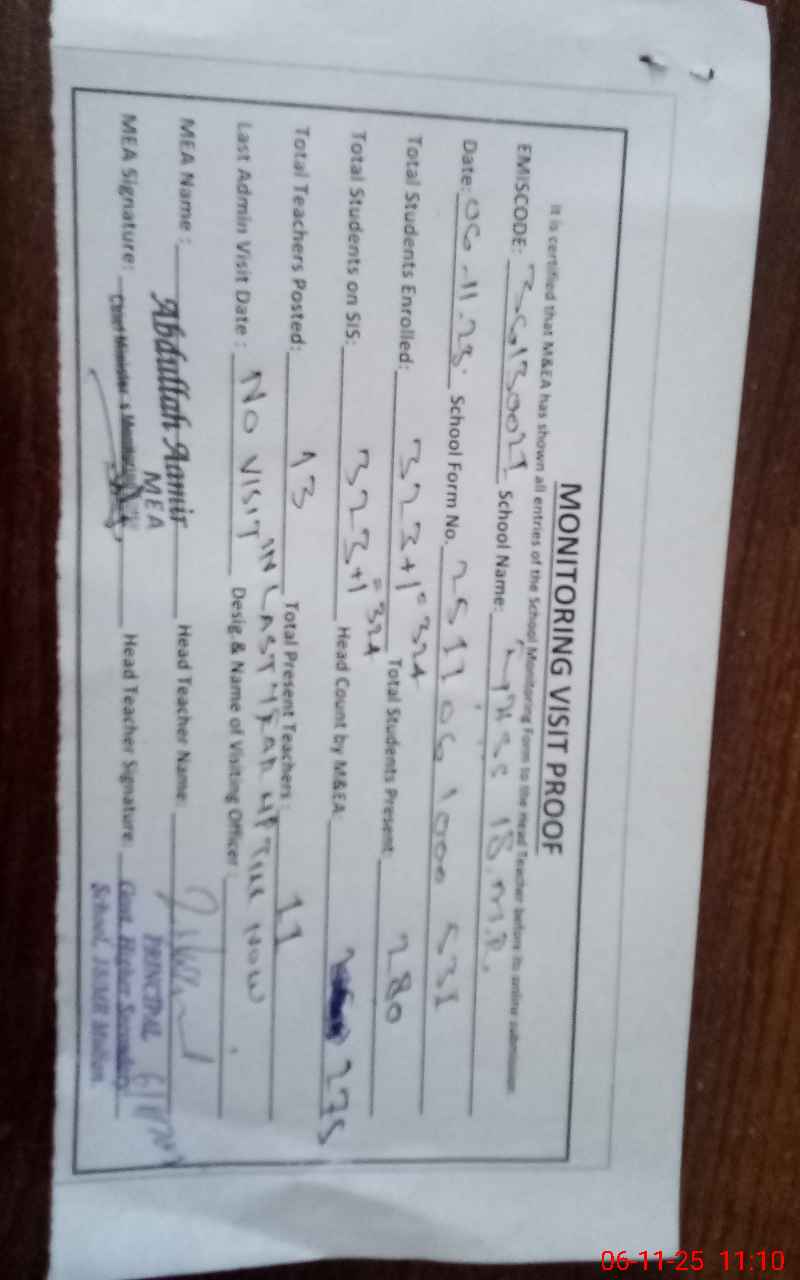 MONITORING VISIT PROOF
It is certified that M&EA has shown all entries of the School Monitoring Form to the Head Teacher before its online submission.
EMISCODE: School Name: 18.M.R.
Date: 06.11.25. School Form No.
Total Students Enrolled: 323+1=324 Total Students Present: 280
Total Students on SIS: 323+1=324 Head Count by M&EA: 275
Total Teachers Posted: 13 Total Present Teachers: 11
Last Admin Visit Date : NO VISIT IN LAST YEAR UP TILL NOW Desig & Name of Visiting Officer:
MEA Name : Abdullah Aamir Head Teacher Name:
MEA
MEA Signature: Chief Minister's Head Teacher Signature:
PRINCIPAL
Govt. Higher Secondary
School, 18/MR Multan
06-11-25 11:10